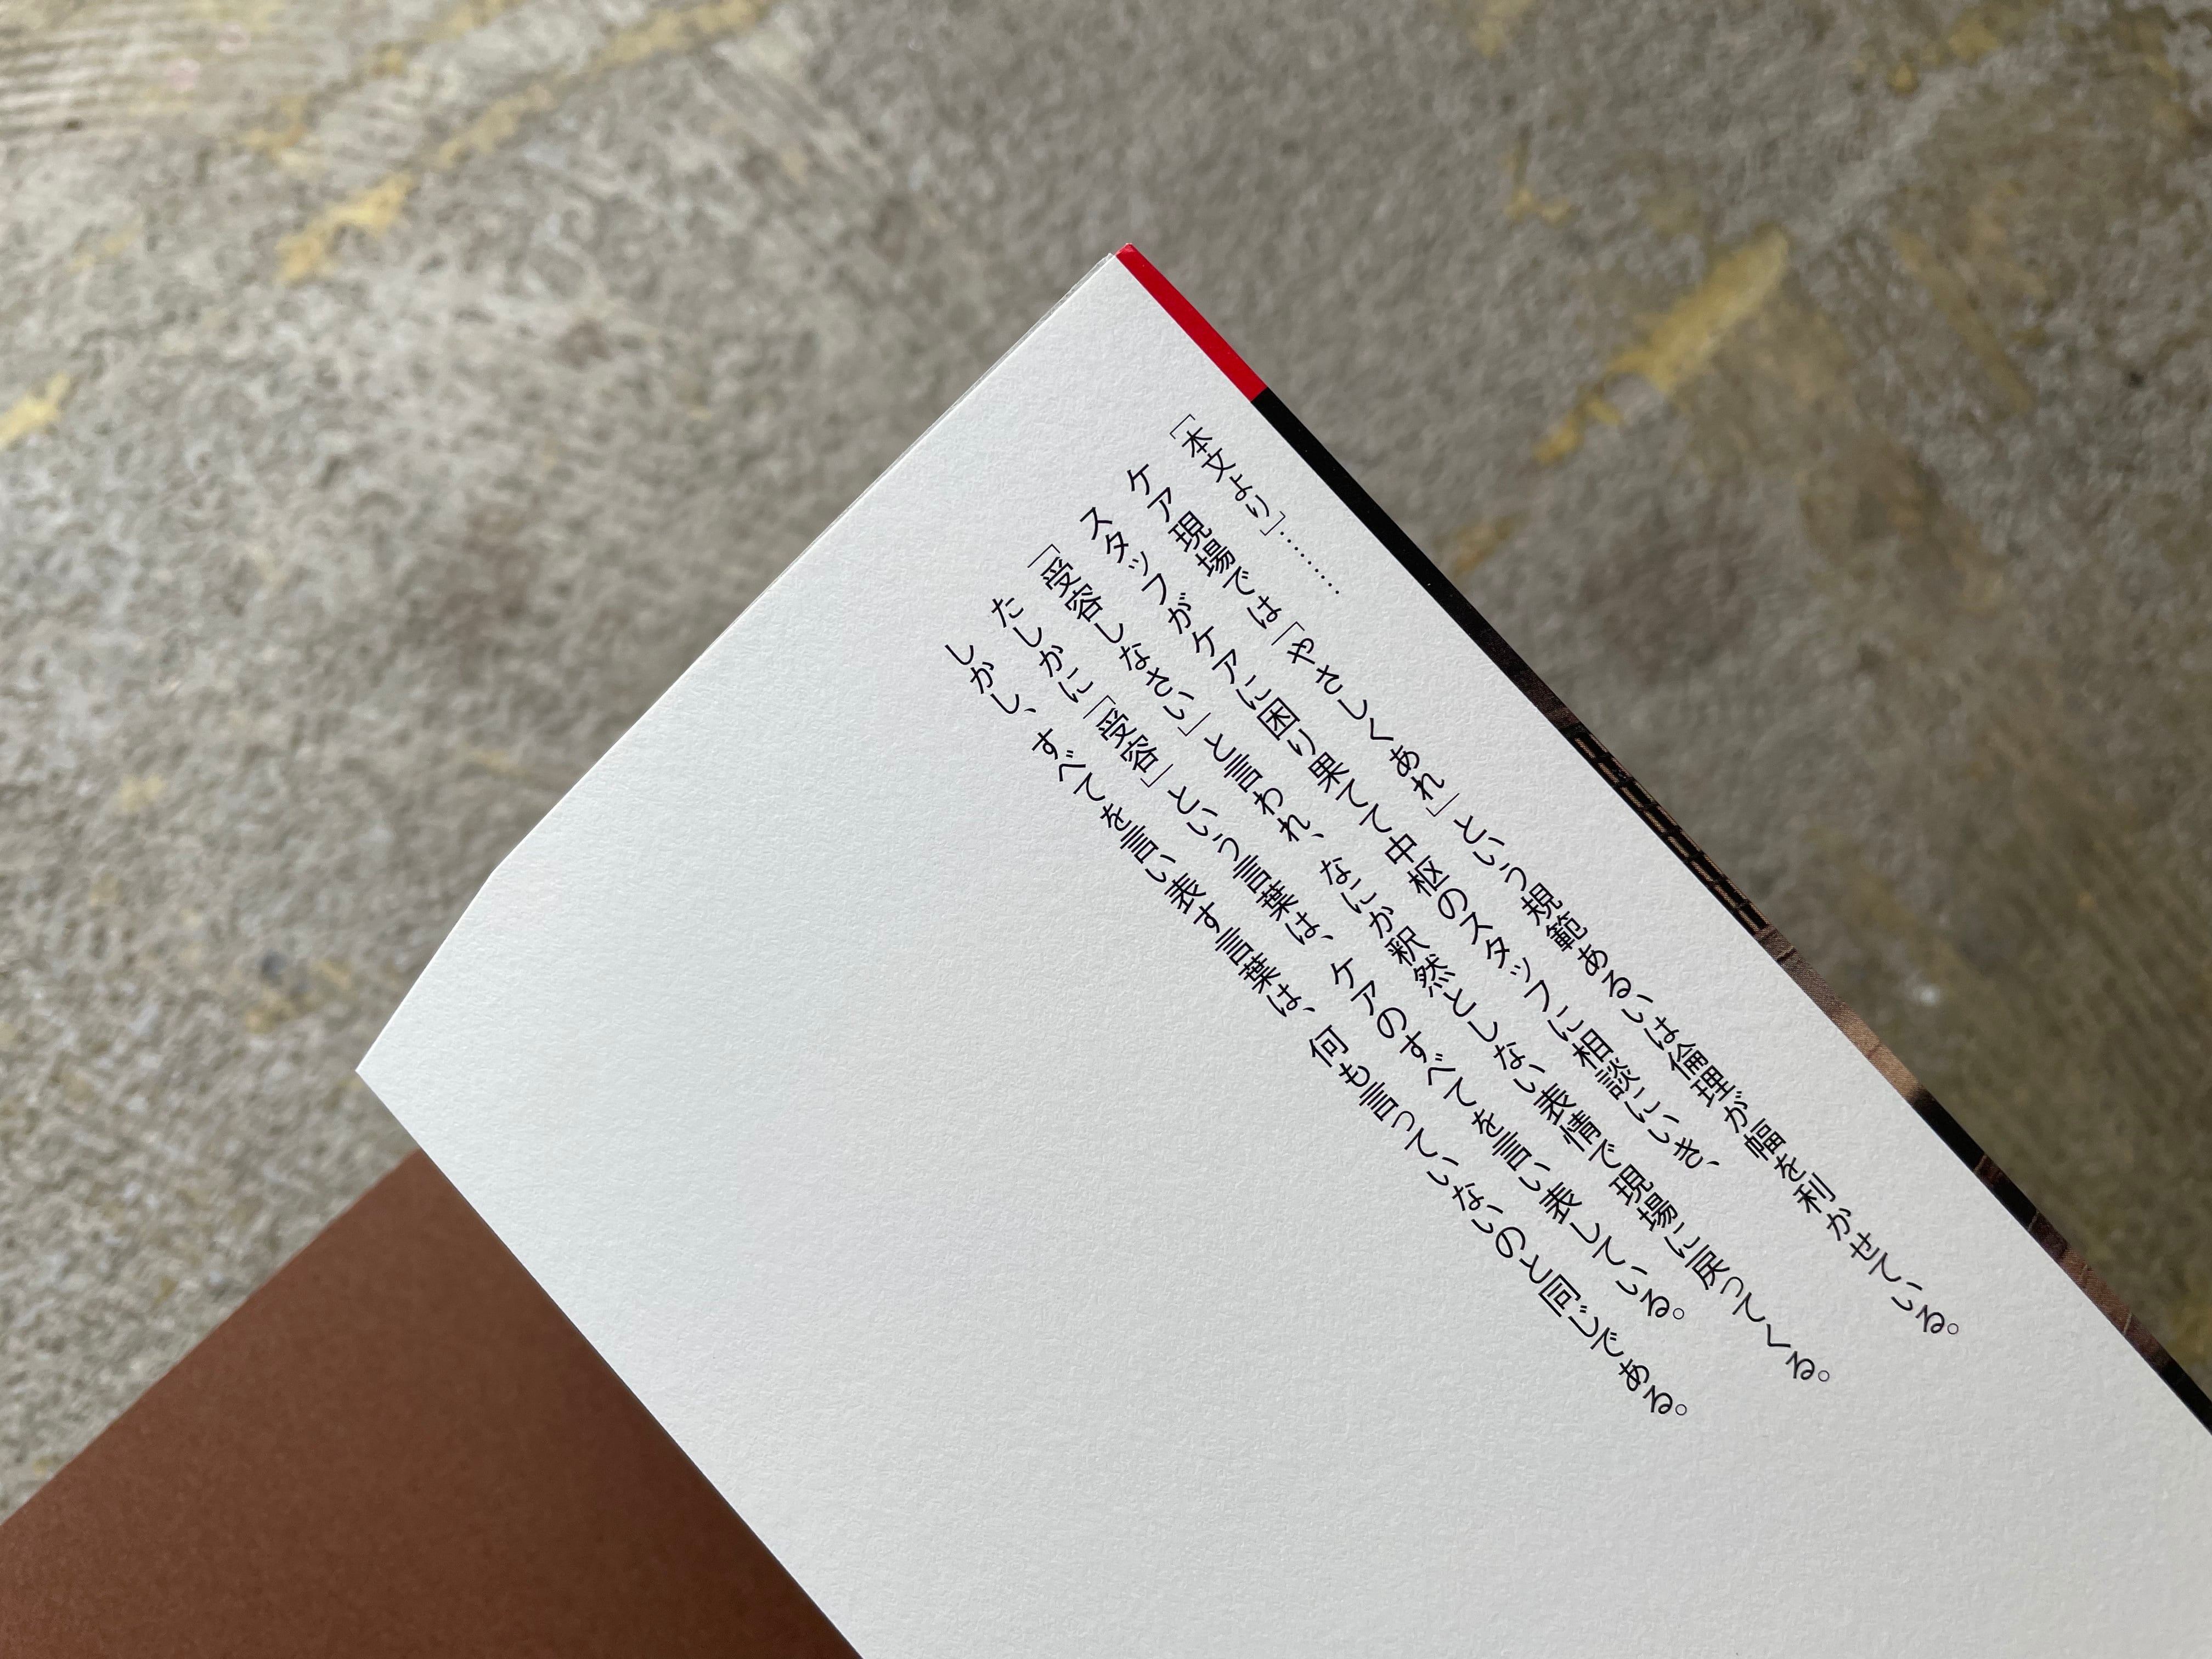 ［本文より］………
ケア現場では「やさしくあれ」という規範あるいは倫理が幅を利かせている。
スタッフがケアに困り果てて中枢のスタッフに相談にいき、
「受容しなさい」と言われ、なにか釈然としない表情で現場に戻ってくる。
たしかに「受容」という言葉は、ケアのすべてを言い表している。
しかし、すべてを言い表す言葉は、何も言っていないのと同じである。